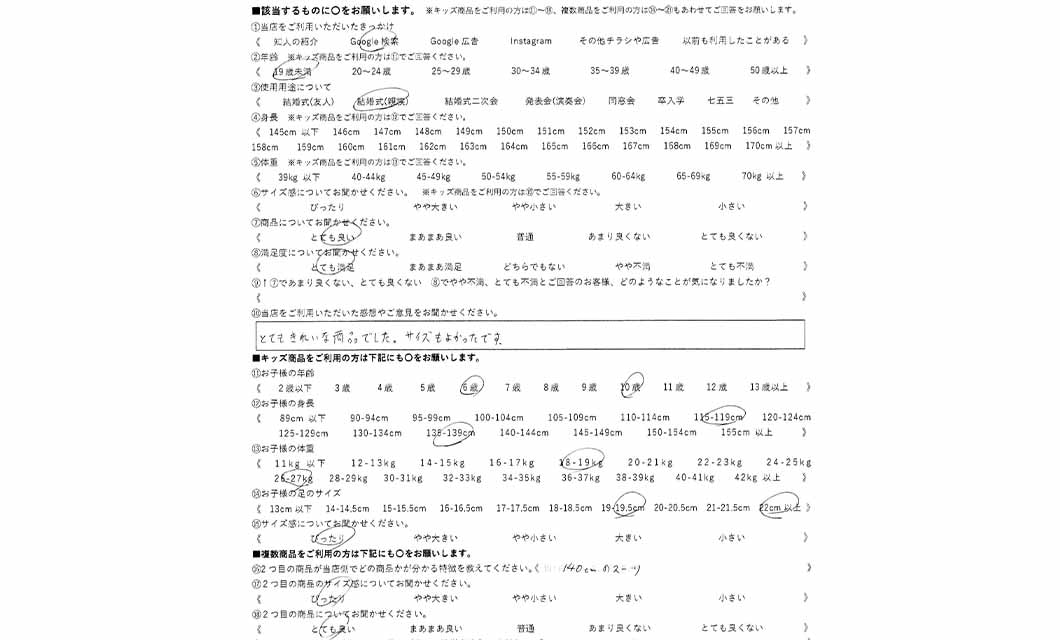 ■該当するものに〇をお願いします。 ※キッズ商品をご利用の方は⑪~⑮、複数商品をご利用の方は⑯~⑳もあわせてご回答をお願いします。
①当店をご利用いただいたきっかけ
《 知人の紹介 Google 検索 Google 広告 Instagram その他チラシや広告 以前も利用したことがある 》
②年齢 ※キッズ商品をご利用の方は⑪でご回答ください。
《 19歳未満 20~24歳 25~29歳 30~34歳 35~39歳 40~49歳 50歳以上 》
③使用用途について
《 結婚式(友人) 結婚式(親族) 結婚式二次会 発表会(演奏会) 同窓会 卒入学 七五三 その他 》
④身長 ※キッズ商品をご利用の方は⑫でご回答ください。
《 145cm 以下 146cm 147cm 148cm 149cm 150cm 151cm 152cm 153cm 154cm 155cm 156cm 157cm
158cm 159cm 160cm 161cm 162cm 163cm 164cm 165cm 166cm 167cm 168cm 169cm 170cm 以上 》
⑤体重 ※キッズ商品をご利用の方は⑬でご回答ください。
《 39kg 以下 40-44kg 45-49kg 50-54kg 55-59kg 60-64kg 65-69kg 70kg 以上 》
⑥サイズ感についてお聞かせください。 ※キッズ商品をご利用の方は⑮でご回答ください。
《 ぴったり やや大きい やや小さい 大きい 小さい 》
⑦商品についてお聞かせください。
《 とても良い まあまあ良い 普通 あまり良くない とても良くない 》
⑧満足度についてお聞かせください。
《 とても満足 まあまあ満足 どちらでもない やや不満 とても不満 》
⑨↑⑦であまり良くない、とても良くない ⑧でやや不満、とても不満とご回答のお客様、どのようなことが気になりましたか?
《 》
⑩当店をご利用いただいた感想やご意見をお聞かせください。
とてもきれいな商品でした。サイズもよかったです
■キッズ商品をご利用の方は下記にも〇をお願いします。
⑪お子様の年齢
《 2歳以下 3歳 4歳 5歳 6歳 7歳 8歳 9歳 10歳 11歳 12歳 13歳以上 》
⑫お子様の身長
《 89cm 以下 90-94cm 95-99cm 100-104cm 105-109cm 110-114cm 115-119cm 120-124cm
125-129cm 130-134cm 135-139cm 140-144cm 145-149cm 150-154cm 155cm 以上 》
⑬お子様の体重
《 11kg 以下 12-13kg 14-15kg 16-17kg 18-19kg 20-21kg 22-23kg 24-25kg
26-27kg 28-29kg 30-31kg 32-33kg 34-35kg 36-37kg 38-39kg 40-41kg 42kg 以上 》
⑭お子様の足のサイズ
《 13cm 以下 14-14.5cm 15-15.5cm 16-16.5cm 17-17.5cm 18-18.5cm 19-19.5cm 20-20.5cm 21-21.5cm 22cm 以上 》
⑮サイズ感についてお聞かせください。
《 ぴったり やや大きい やや小さい 大きい 小さい 》
■複数商品をご利用の方は下記にも〇をお願いします。
⑯2つ目の商品が当店側でどの商品かが分かる特徴を教えてください。《 140cmのスーツ 》
⑰2つ目の商品のサイズ感についてお聞かせください。
《 ぴったり やや大きい やや小さい 大きい 小さい 》
⑱2つ目の商品についてお聞かせください。
《 とても良い まあまあ良い 普通 あまり良くない とても良くない 》